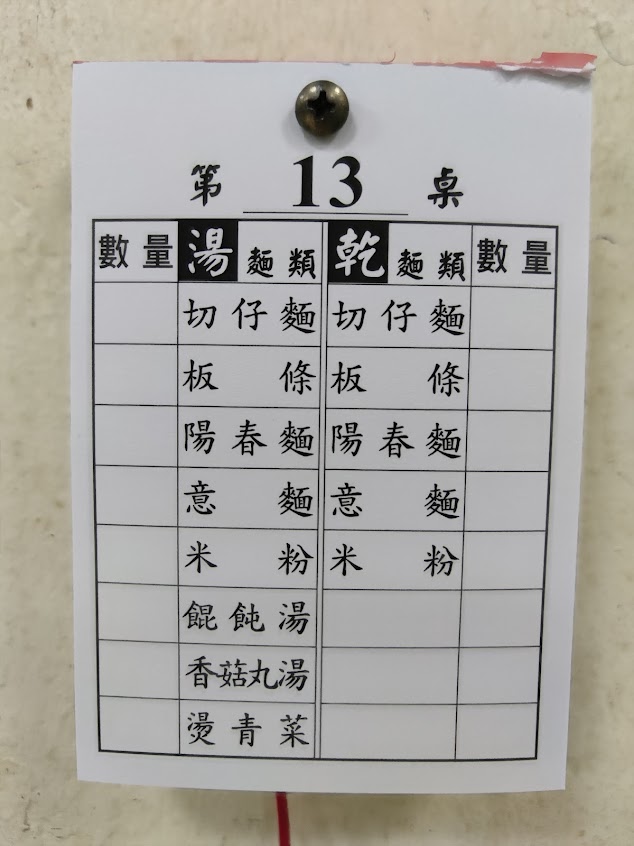 第 13 桌
數量 湯麵類 乾麵類 數量
切仔麵 切仔麵
板條 板條
陽春麵 陽春麵
意麵 意麵
米粉 米粉
餛飩湯
香菇丸湯
燙青菜